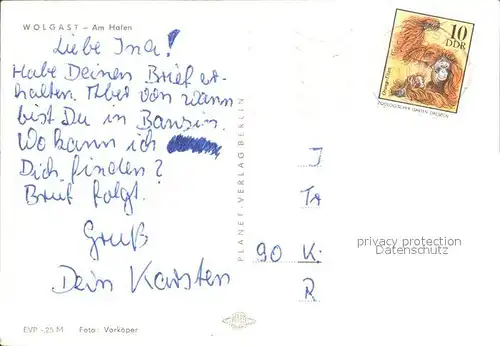 WOLGAST – Am Hafen
Liebe Ina!
Habe Deinen Brief er-
halten. Aber von wann
bist Du in Bansin.
Wo kann ich
Dich finden?
Brief folgt.
Gruß
Dein Karsten
PLANET-VERLAG BERLIN
10
DDR
ZOOLOGISCHER GARTEN DRESDEN
J
90 K
R
privacy protection
Datenschutz
EVP -.25 M Foto: Vorköper